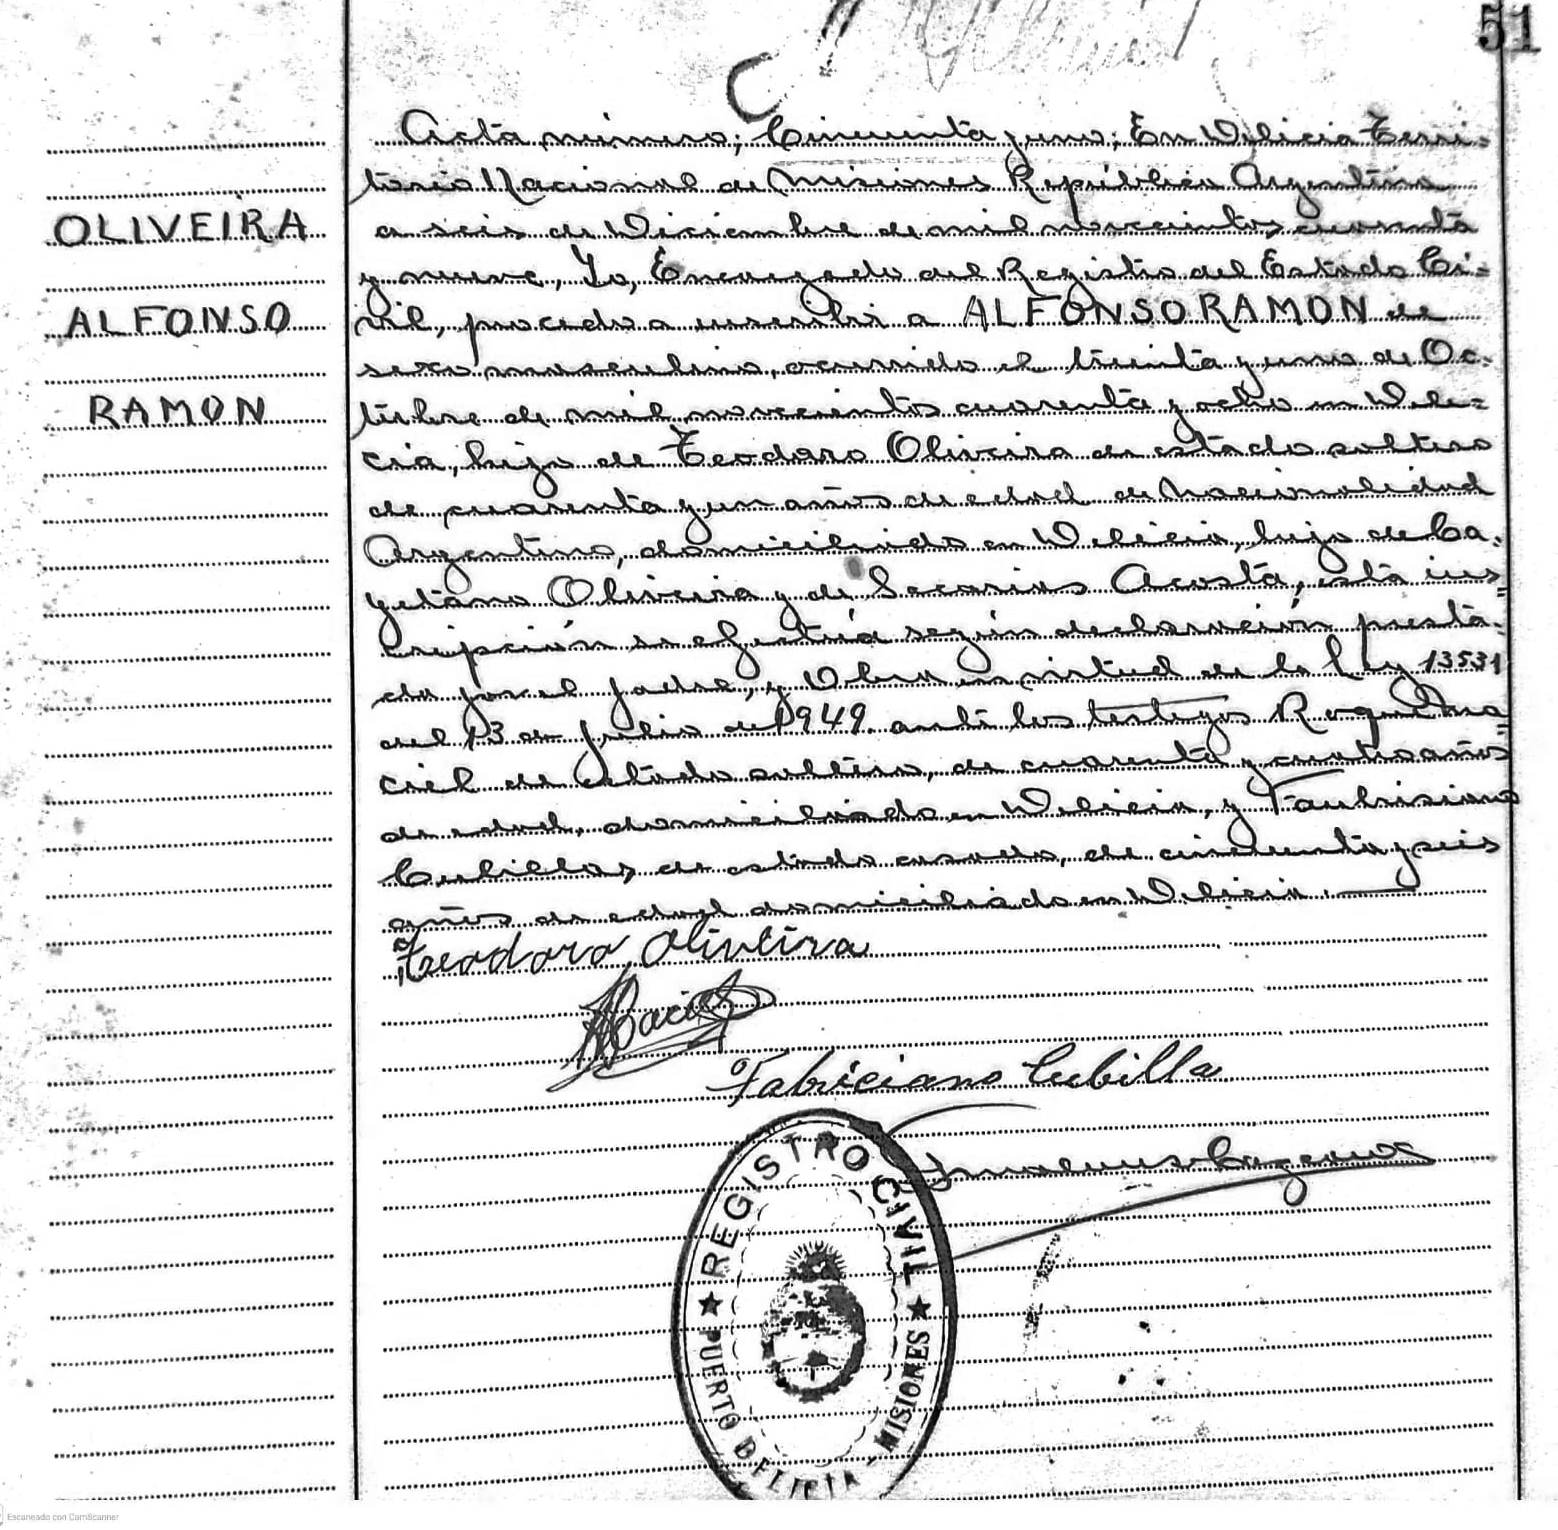 51
Acta número; Cincuenta y uno; En Delicia Terri-
torio Nacional de Misiones República Argentina
OLIVEIRA
a seis de Diciembre de mil novecientos cuarenta
y nueve, Yo, Encargado del Registro del Estado Ci-
ALFONSO
vil, procedo a inscribir a ALFONSO RAMON de
sexo masculino, ocurrido el treinta y uno de Oc-
RAMON
tubre de mil novecientos cuarenta y ocho en Deli-
cia, hijo de Teodoro Oliveira de estado soltero
de cuarenta y un años de edad de nacionalidad
Argentino, domiciliado en Delicia, hijo de Ca-
yetano Oliveira y de Acosta, esta ins-
cripción se efectúa según declaración presta-
da por el padre, y Obra en virtud de la Ley 13531
del 13 de Julio de 1949. ante los testigos Roque Ma-
ciel de estado soltero, de cuarenta y cuatro años
de edad, domiciliado en Delicia, y
Cubillas, de estado casado, de cincuenta y seis
años de edad domiciliado en Delicia.
Teodoro Oliveira
Maciel
Fabriciano Cubilla
REGISTRO CIVIL
PUERTO DELICIA - MISIONES
Escaneado con CamScanner